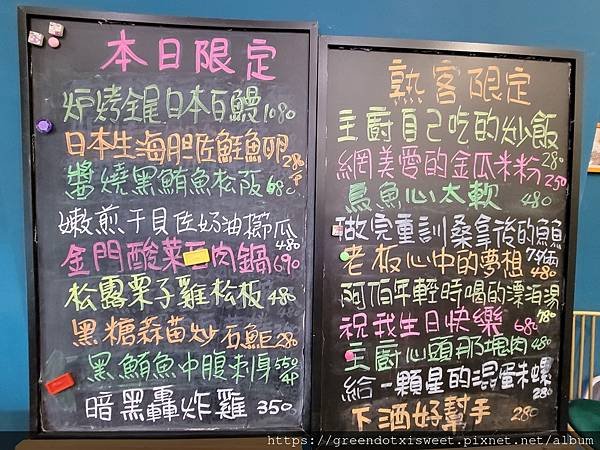 本日限定
炉烤全尾日本白鰻1080
日本生海胆佐鮭魚卵280
醬燒黑鮪魚松阪680
嫩煎干貝佐奶油櫛瓜480
金門酸菜白肉鍋690
松露栗子雞松板480
黑糖蒜苗炒石魠280
黑鮪魚中腹刺身550
暗黑轟炸雞350
熟客限定
主廚自己吃的炒飯280
網美愛的金瓜米粉250
烏魚心太軟480
做完重訓桑拿後的鱻
老板心中的夢想480
阿伯年輕時喝的漂酒湯780
祝我生日快樂680
主廚心頭那塊肉480
給一顆星的混蛋末螺280
下酒好幫手280
https://greendotxisweet.pixnet.net/album